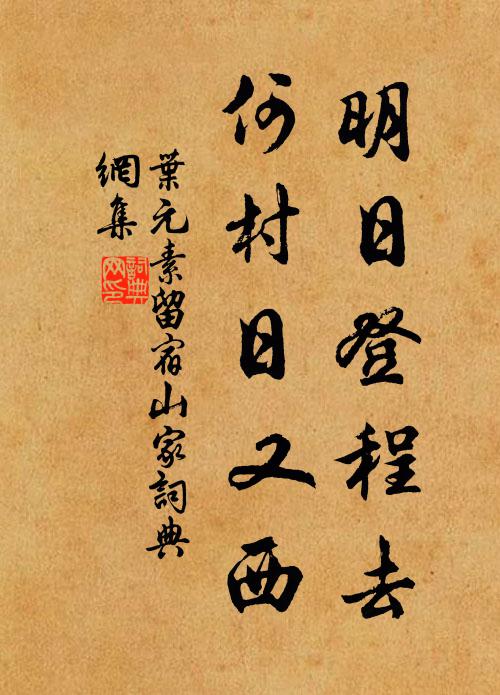 明日登程去
何村日又西
葉元素留宿山家詞典
網集
詞典網印